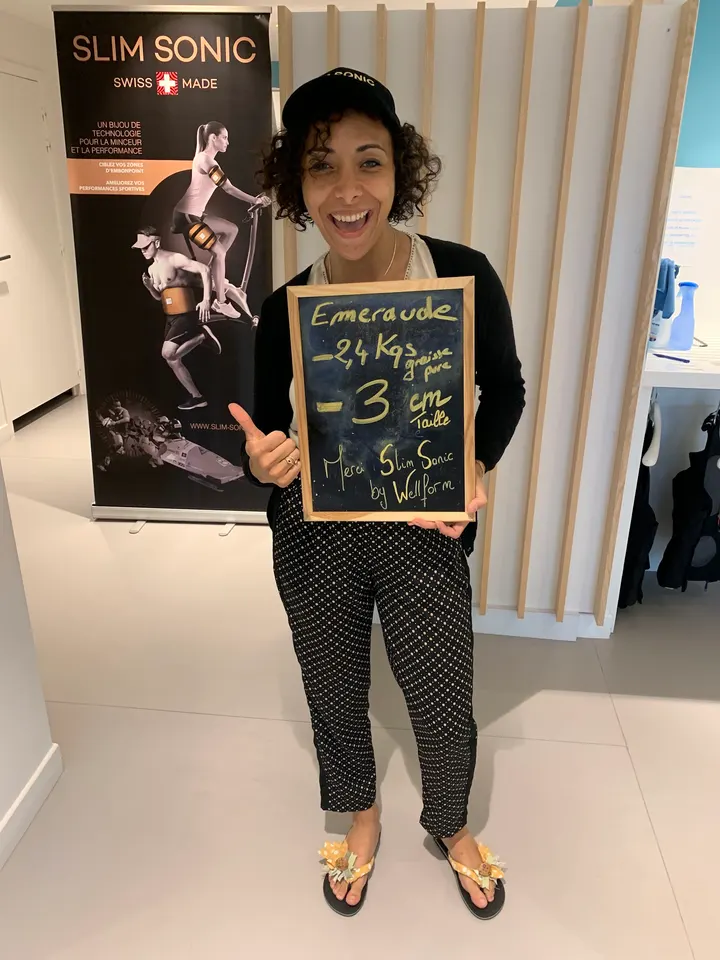 SLIM SONIC
SWISS MADE
UN BIJOU DE
TECHNOLOGIE
POUR LA MINCEUR
ET LA PERFORMANCE
CIBLEZ VOS ZONES
D'EMBONPOINT
AMÉLIOREZ VOS
PERFORMANCES SPORTIVES
WWW.SLIM-SON
SONIC
Emeraude
-2,4 Kgs
graisse
pure
- 3 cm
Taille
Merci Slim Sonic
by Wellform